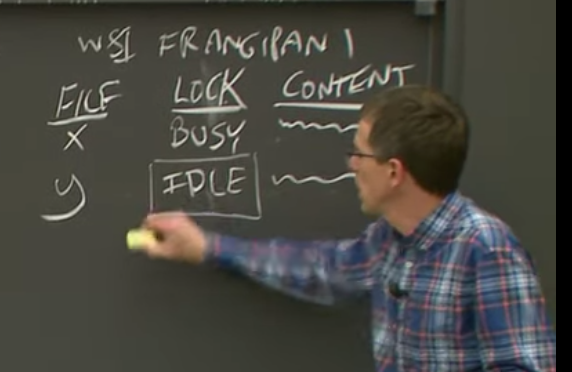 WS1 FRANGIPANI
FILE LOCK CONTENT
X BUSY
y IDLE